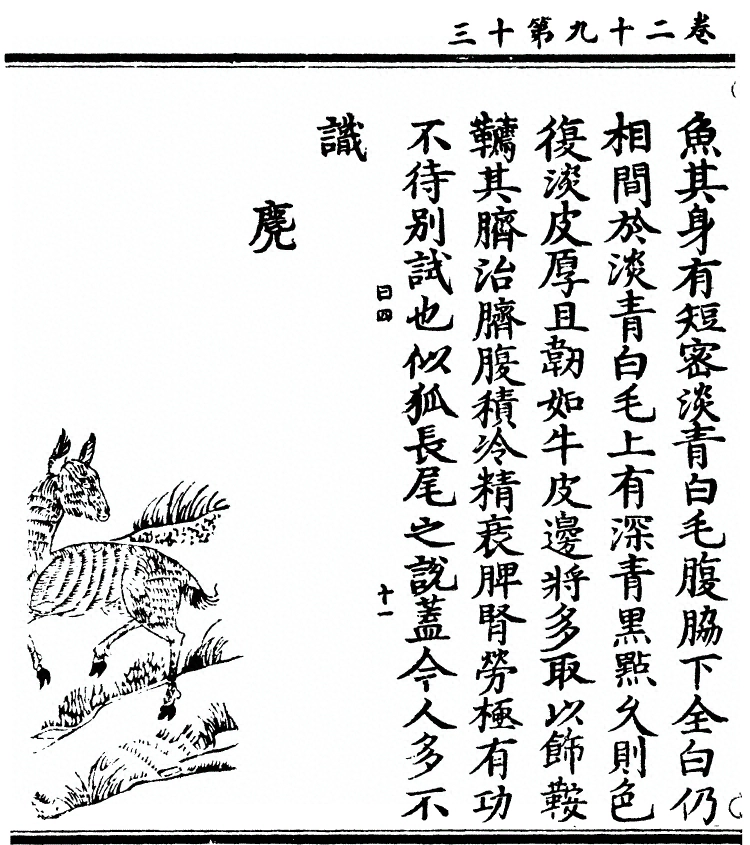 卷二十九第十三
魚其身有短密淡青白毛腹脇下全白仍
相間於淡青白毛上有深青黑點久則色
復淡皮厚且韌如牛皮邊將多取以飾鞍
韉其臍治臍腹積冷精衰脾腎勞極有功
不待別試也似狐長尾之說蓋今人多不
曰四
十一
識
麂